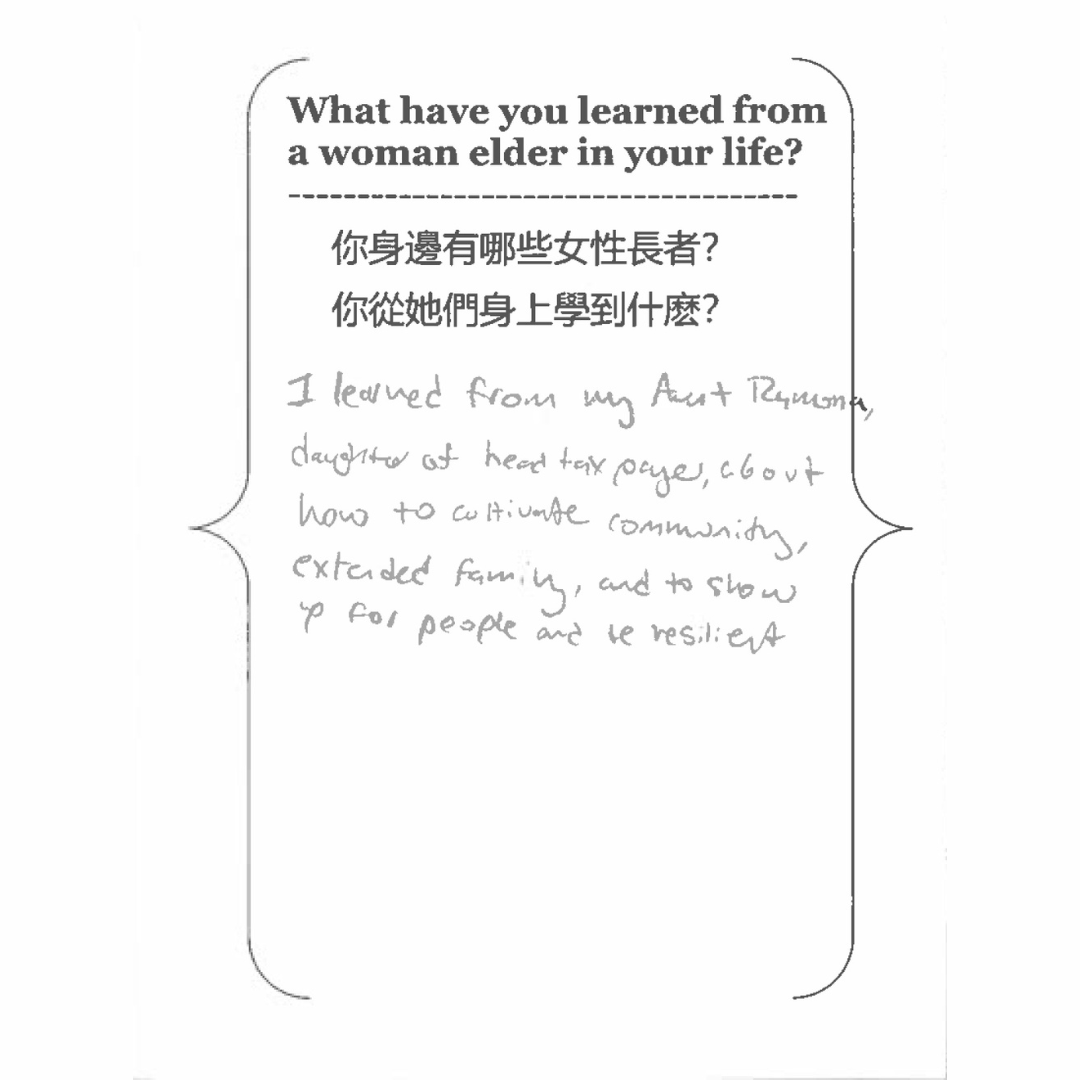 What have you learned from
a woman elder in your life?
你身邊有哪些女性長者?
你從她們身上學到什麽?
I learned from my Aunt Ramona,
daughter of head tax payer, about
how to cultivate community,
extended family, and to show
up for people and be resilient